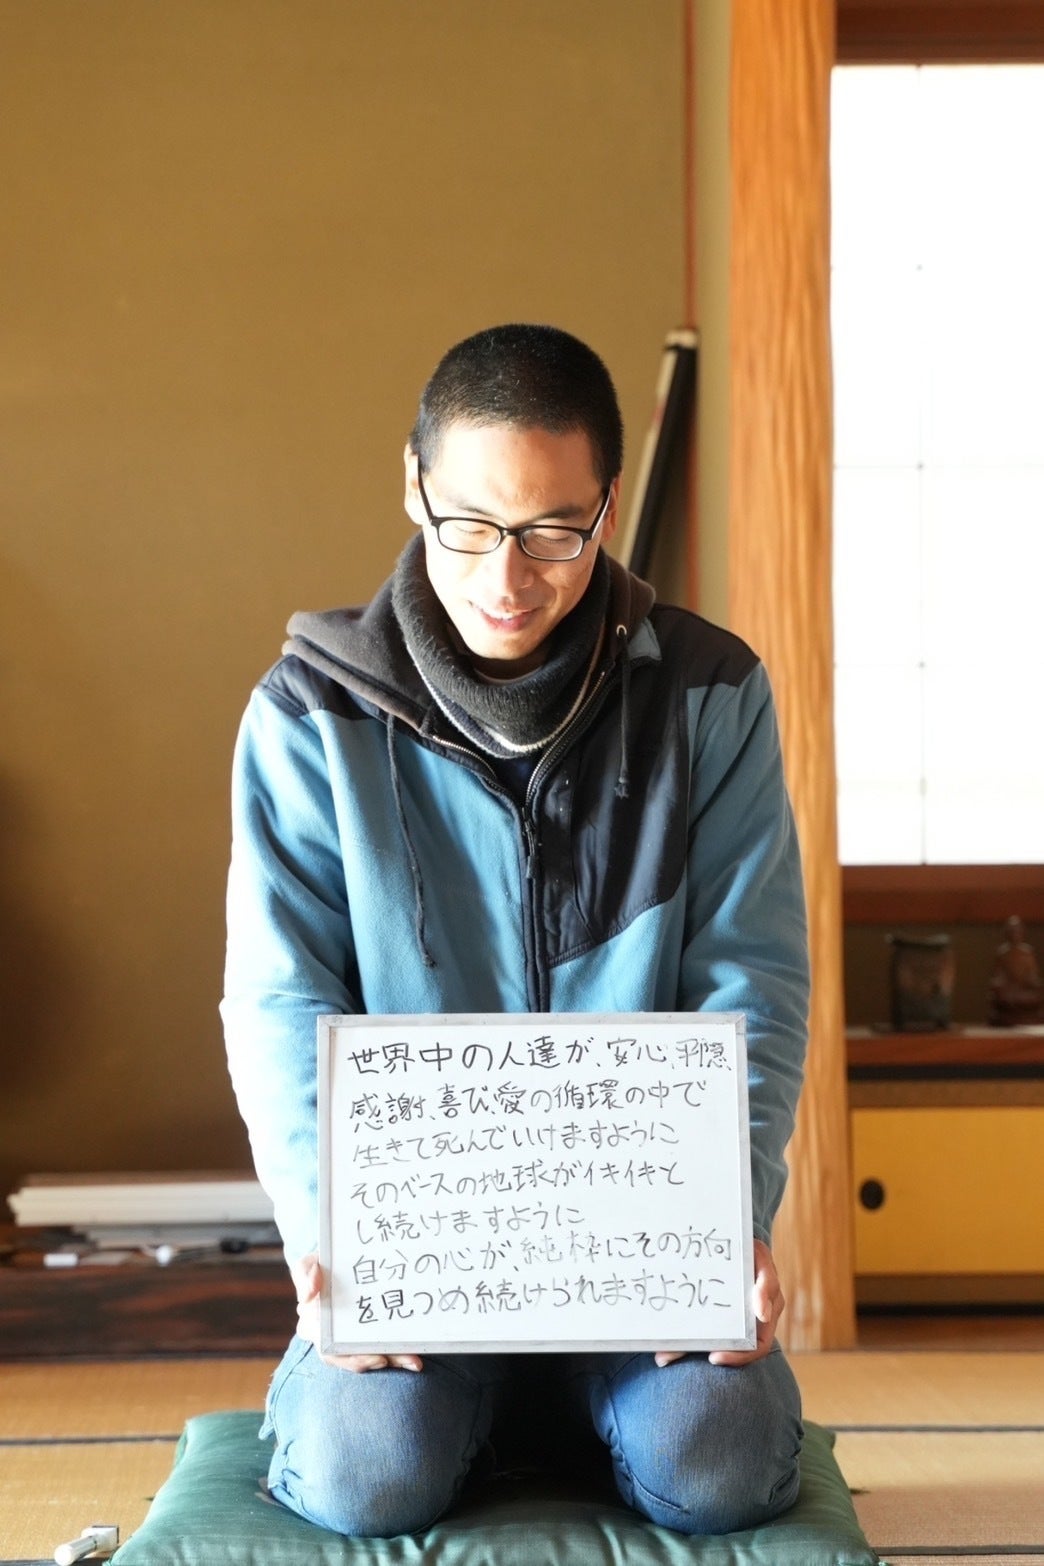 世界中の人達が、安心、平穏、
感謝、喜び、愛の循環の中で
生きて死んでいけますように
そのベースの地球がイキイキと
し続けますように
自分の心が、純粋にその方向
を見つめ続けられますように